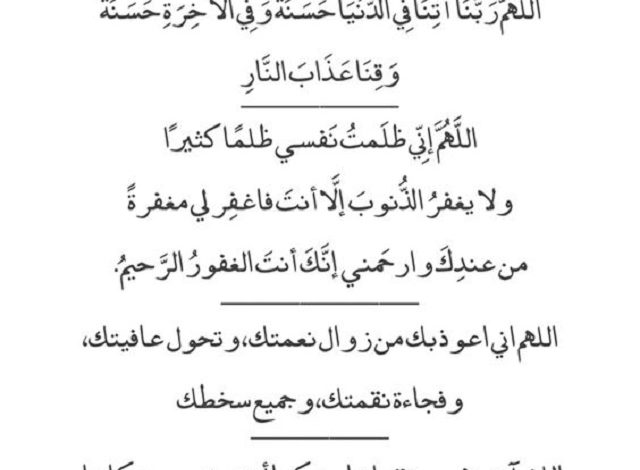 اللَّهُمَّ رَبَّنَا آتِنَا فِي الدُّنْيَا حَسَنَةً وَفِي الْآخِرَةِ حَسَنَةً
وَقِنَا عَذَابَ النَّارِ
اللَّهُمَّ إنِّي ظلَمتُ نَفسي ظلمًا كثيرًا
ولا يغفرُ الذُّنوبَ إلَّا أنتَ فاغفِر لي مغفرةً
من عندِكَ وارحَمني إنَّكَ أنتَ الغفورُ الرَّحيمُ.
اللهم اني اعوذ بك من زوال نعمتك، وتحول عافيتك،
وفجاءة نقمتك، وجميع سخطك